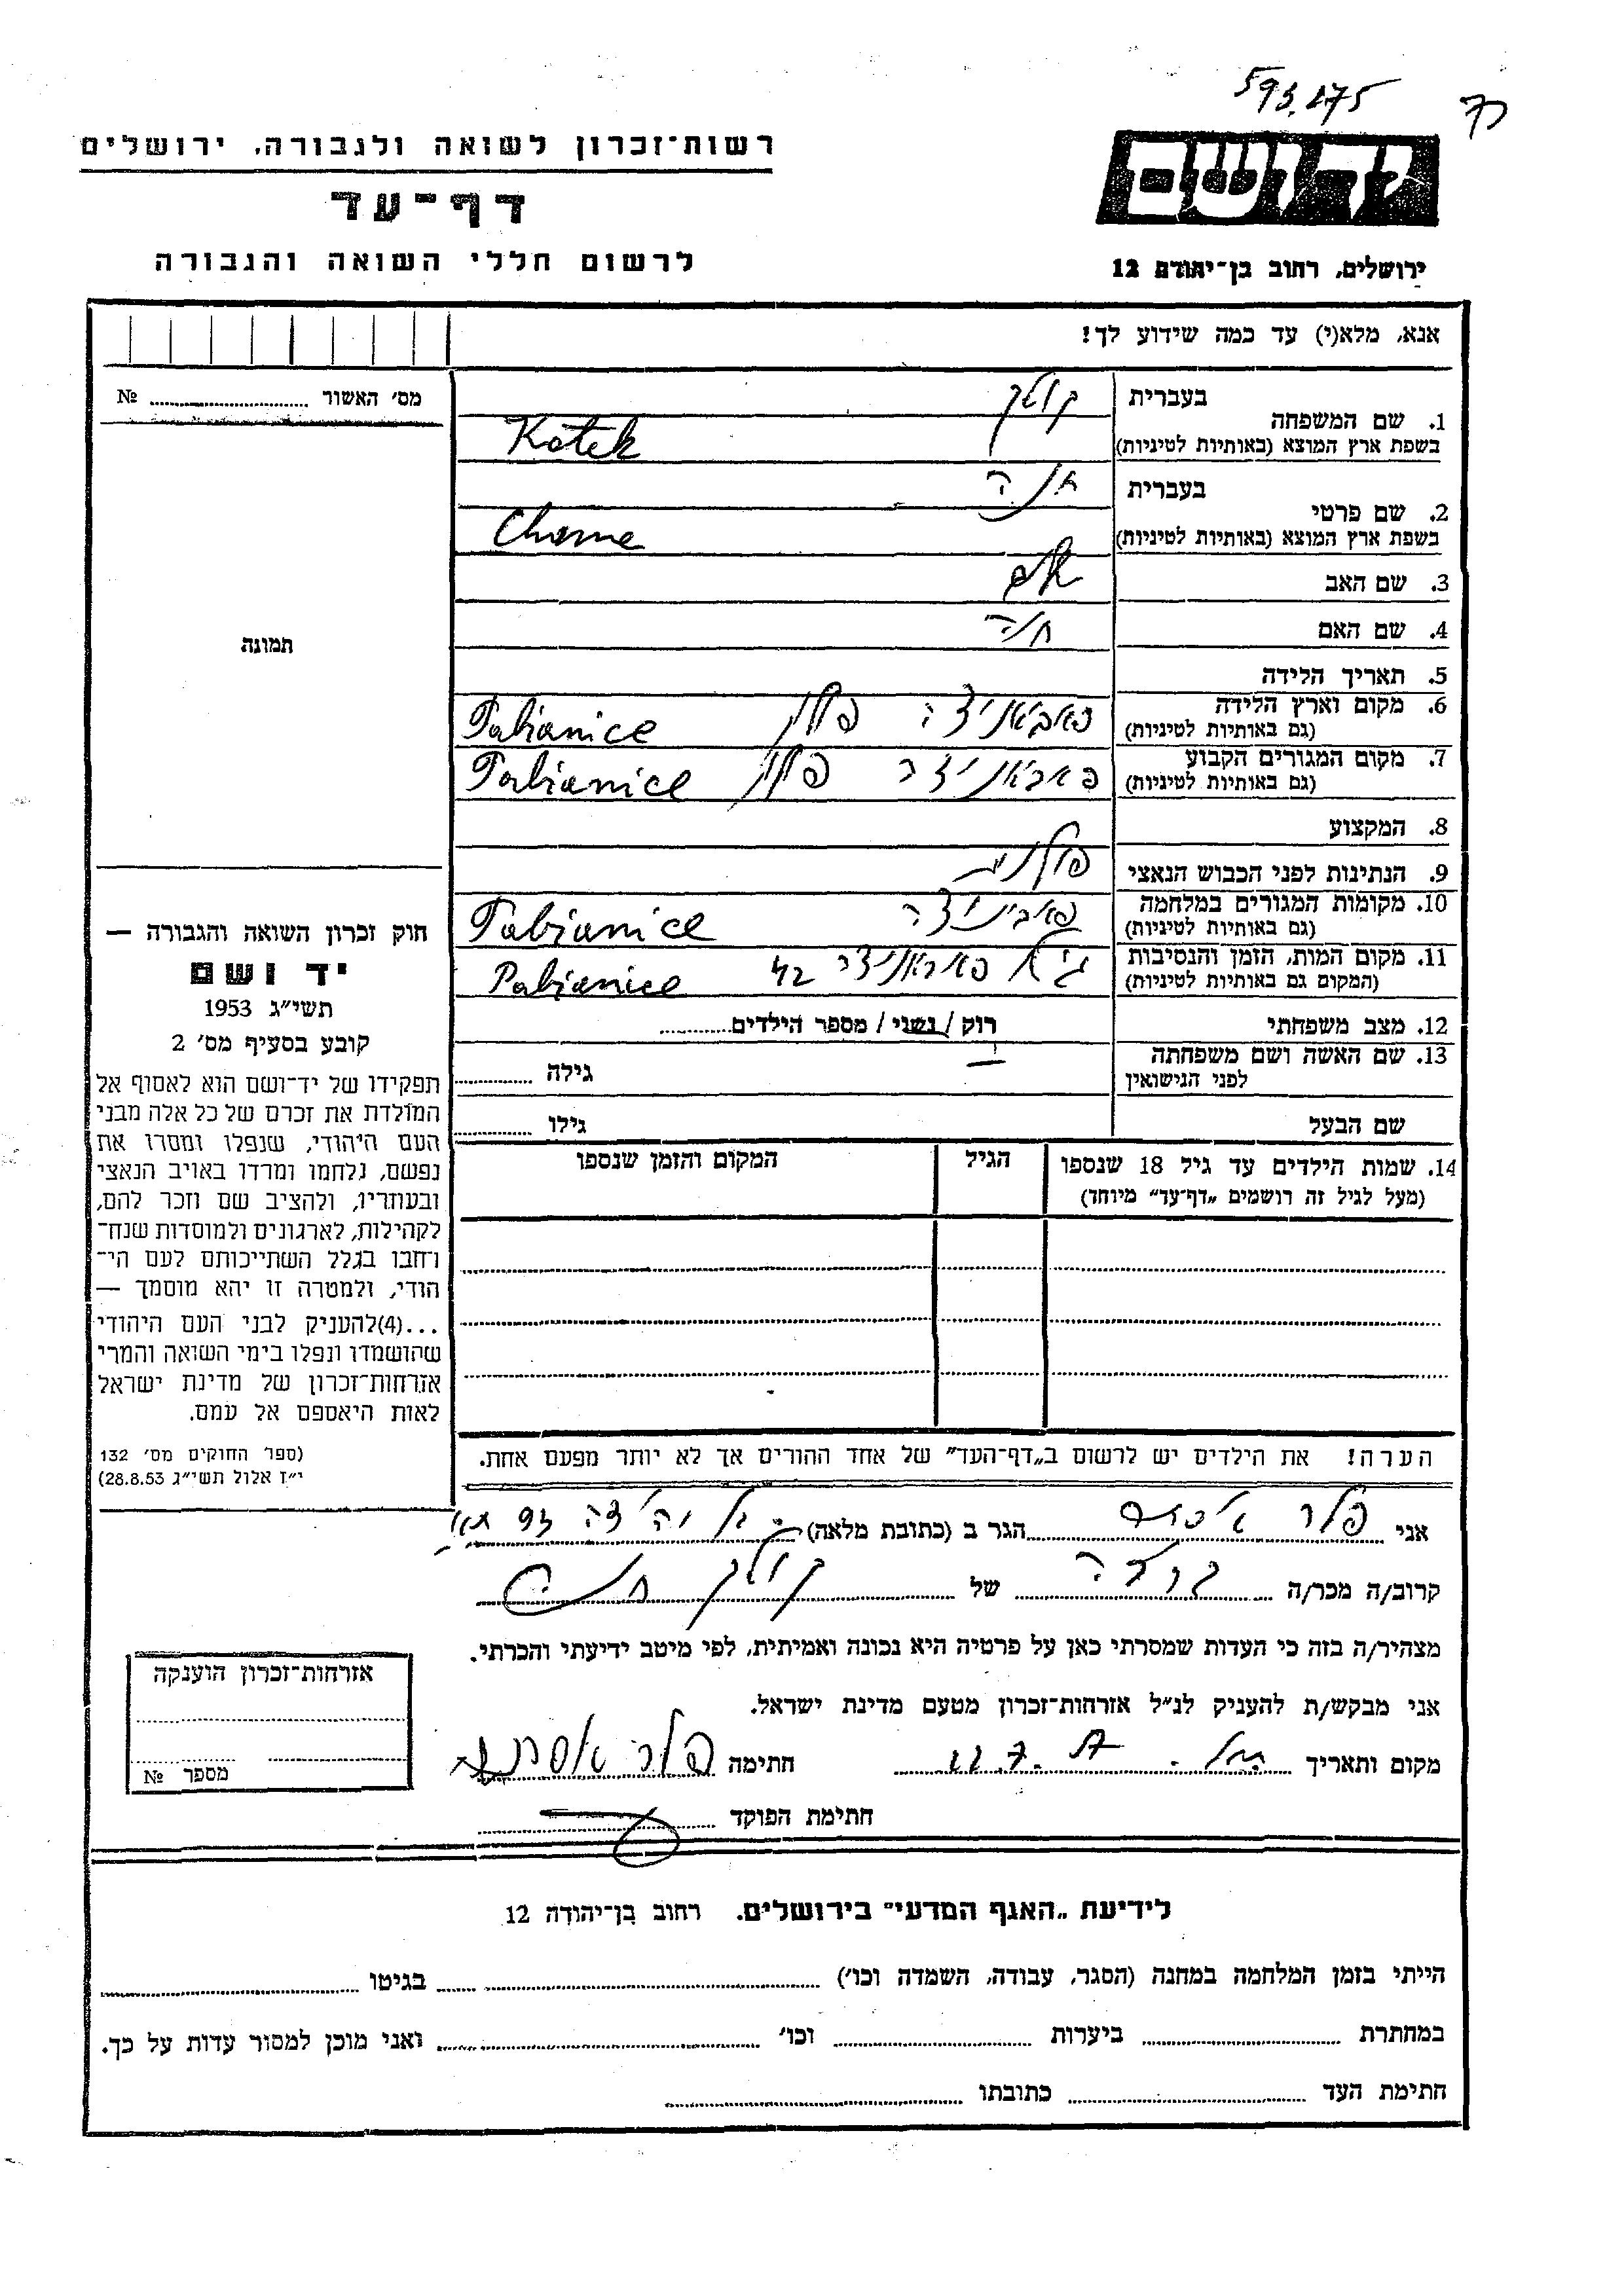 593.175
רשות־זכרון לשואה ולגבורה, ירושלים
יד ושם
דף־עד
לרשום חללי השואה והגבורה
ירושלים, רחוב בן־יהודה 12
אנא, מלא(י) עד כמה שידוע לך!
מס׳ האשור № 
1. שם המשפחה בעברית קוטק
בשפת ארץ המוצא (באותיות לטיניות) Kotek
2. שם פרטי בעברית חנה
בשפת ארץ המוצא (באותיות לטיניות)
3. שם האב
4. שם האם חיה
5. תאריך הלידה
6. מקום וארץ הלידה (גם באותיות לטיניות) פאביאניצה פולין Pabianice
7. מקום המגורים הקבוע (גם באותיות לטיניות) פאביאניצה פולין Pabianice
8. המקצוע
9. הנתינות לפני הכבוש הנאצי פולנית
10. מקומות המגורים במלחמה (גם באותיות לטיניות) פאביניצה Pabianice
11. מקום המות, הזמן והנסיבות (המקום גם באותיות לטיניות) פאביאניצה 42 Pabianice
12. מצב משפחתי רווק / נשוי / מספר הילדים
13. שם האשה ושם משפחתה לפני הנישואין גילה
שם הבעל גילו
14. שמות הילדים עד גיל 18 שנספו הגיל המקום והזמן שנספו
(מעל לגיל זה רושמים „דף־עד״ מיוחד)
תמונה
חוק זכרון השואה והגבורה —
יד ושם
תשי״ג 1953
קובע בסעיף מס׳ 2
תפקידו של יד־ושם הוא לאסוף אל
המולדת את זכרם של כל אלה מבני
העם היהודי, שנפלו ומסרו את
נפשם, נלחמו ומרדו באויב הנאצי
ובעוזריו, ולהציב שם וזכר להם,
לקהילות, לארגונים ולמוסדות שנח־
רחבו בגלל השתייכותם לעם הי־
הודי, ולמטרה זו יהא מוסמך —
...(4)להעניק לבני העם היהודי
שהושמדו ונפלו בימי השואה והמרי
אזרחות־זכרון של מדינת ישראל
לאות היאספם אל עמם.
(ספר החוקים מס׳ 132
י״ז אלול תשי״ג 28.8.53)
הערה! את הילדים יש לרשום ב„דף־העד״ של אחד ההורים אך לא יותר מפעם אחת.
אני פלר הגר ב (כתובת מלאה)
קרוב/ה מכר/ה של קוטק
מצהיר/ה בזה כי העדות שמסרתי כאן על פרטיה היא נכונה ואמיתית, לפי מיטב ידיעתי והכרתי.
אני מבקש/ת להעניק לנ״ל אזרחות־זכרון מטעם מדינת ישראל.
מקום ותאריך חתימה פלר אסתר
חתימת הפוקד
אזרחות־זכרון הוענקה
מספר №
לידיעת „האגף המדעי״ בירושלים. רחוב בן־יהודה 12
הייתי בזמן המלחמה במחנה (הסגר, עבודה, השמדה וכו׳) בגיטו
במחתרת ביערות וכו׳ ואני מוכן למסור עדות על כך.
חתימת העד כתובתו